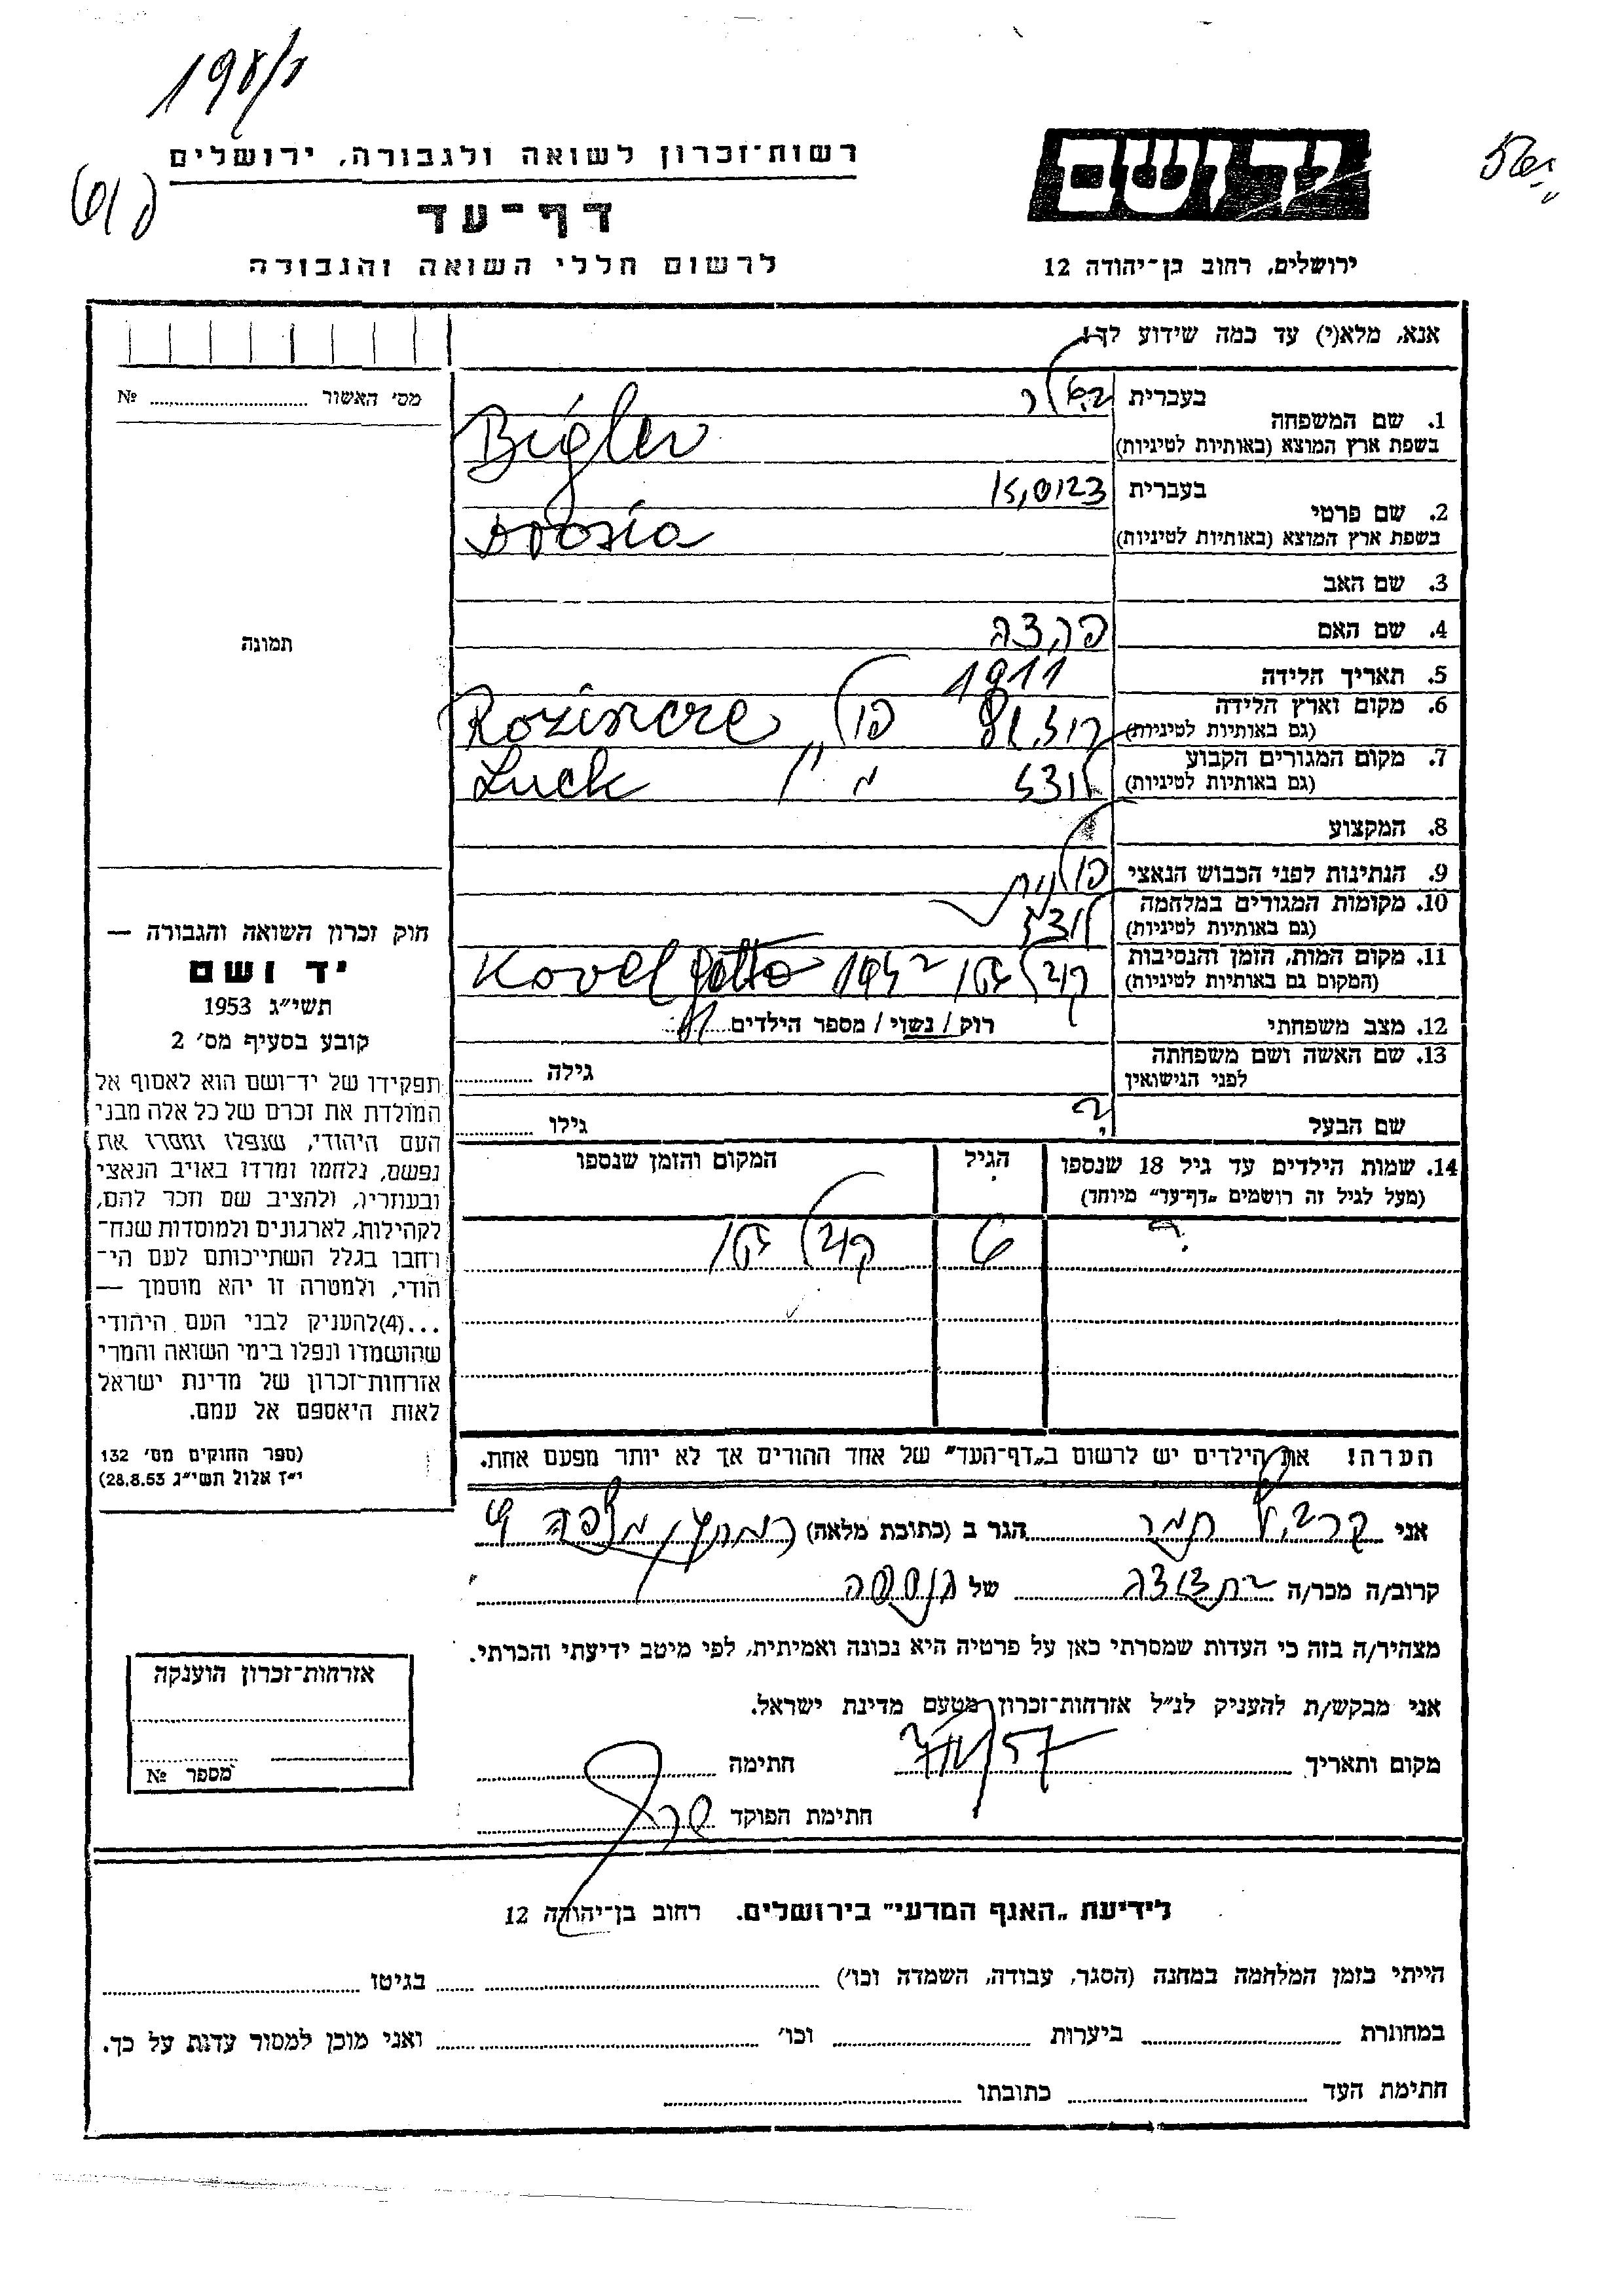 רשות־זכרון לשואה ולגבורה, ירושלים
יד ושם
דף־עד
לרשום חללי השואה והגבורה
ירושלים, רחוב בן־יהודה 12
אנא, מלא(י) עד כמה שידוע לך!
מס׳ האשור № 
1. שם המשפחה בעברית ביגלר
בשפת ארץ המוצא (באותיות לטיניות) Bigler
2. שם פרטי בעברית
בשפת ארץ המוצא (באותיות לטיניות)
3. שם האב
4. שם האם
5. תאריך הלידה 1911
6. מקום וארץ הלידה
(גם באותיות לטיניות)
7. מקום המגורים הקבוע לוצק
(גם באותיות לטיניות) Luck
8. המקצוע
9. הנתינות לפני הכבוש הנאצי פולנית
10. מקומות המגורים במלחמה לוצק
(גם באותיות לטיניות)
11. מקום המות, הזמן והנסיבות קובל גטו 1942 Kovel getto
(המקום גם באותיות לטיניות)
12. מצב משפחתי רוק / נשוי / מספר הילדים
13. שם האשה ושם משפחתה לפני הנישואין גילה
שם הבעל ? גילו
14. שמות הילדים עד גיל 18 שנספו הגיל המקום והזמן שנספו
(מעל לגיל זה רושמים „דף־עד” מיוחד)
? 6 קובל גטו
הערה! את הילדים יש לרשום ב„דף־העד” של אחד ההורים אך לא יותר מפעם אחת.
תמונה
חוק זכרון השואה והגבורה —
יד ושם
תשי״ג 1953
קובע בסעיף מס׳ 2
תפקידו של יד־ושם הוא לאסוף אל
המולדת את זכרם של כל אלה מבני
העם היהודי, שנפלו ומסרו את
נפשם, נלחמו ומרדו באויב הנאצי
ובעוזריו, ולהציב שם וזכר להם,
לקהילות, לארגונים ולמוסדות שנח־
רחבו בגלל השתייכותם לעם הי־
הודי, ולמטרה זו יהא מוסמך —
...(4)להעניק לבני העם היהודי
שהושמדו ונפלו בימי השואה והמרי
אזרחות־זכרון של מדינת ישראל
לאות היאספם אל עמם.
(ספר החוקים מס׳ 132
י״ז אלול תשי״ג 28.8.53)
אני תמר הגר ב (כתובת מלאה)
קרוב/ה מכר/ה בת דודה של הנספה
מצהיר/ה בזה כי העדות שמסרתי כאן על פרטיה היא נכונה ואמיתית, לפי מיטב ידיעתי והכרתי.
אני מבקש/ת להעניק לנ״ל אזרחות־זכרון מטעם מדינת ישראל.
מקום ותאריך חתימה
חתימת הפוקד
אזרחות־זכרון הוענקה
מספר №
לידיעת „האגף המדעי” בירושלים. רחוב בן־יהודה 12
הייתי בזמן המלחמה במחנה (הסגר, עבודה, השמדה וכו׳) בגיטו
במחתרת ביערות וכו׳ ואני מוכן למסור עדות על כך.
חתימת העד כתובתו